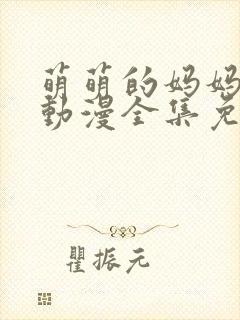 萌萌的妈妈
動漫全集免
瞿振元